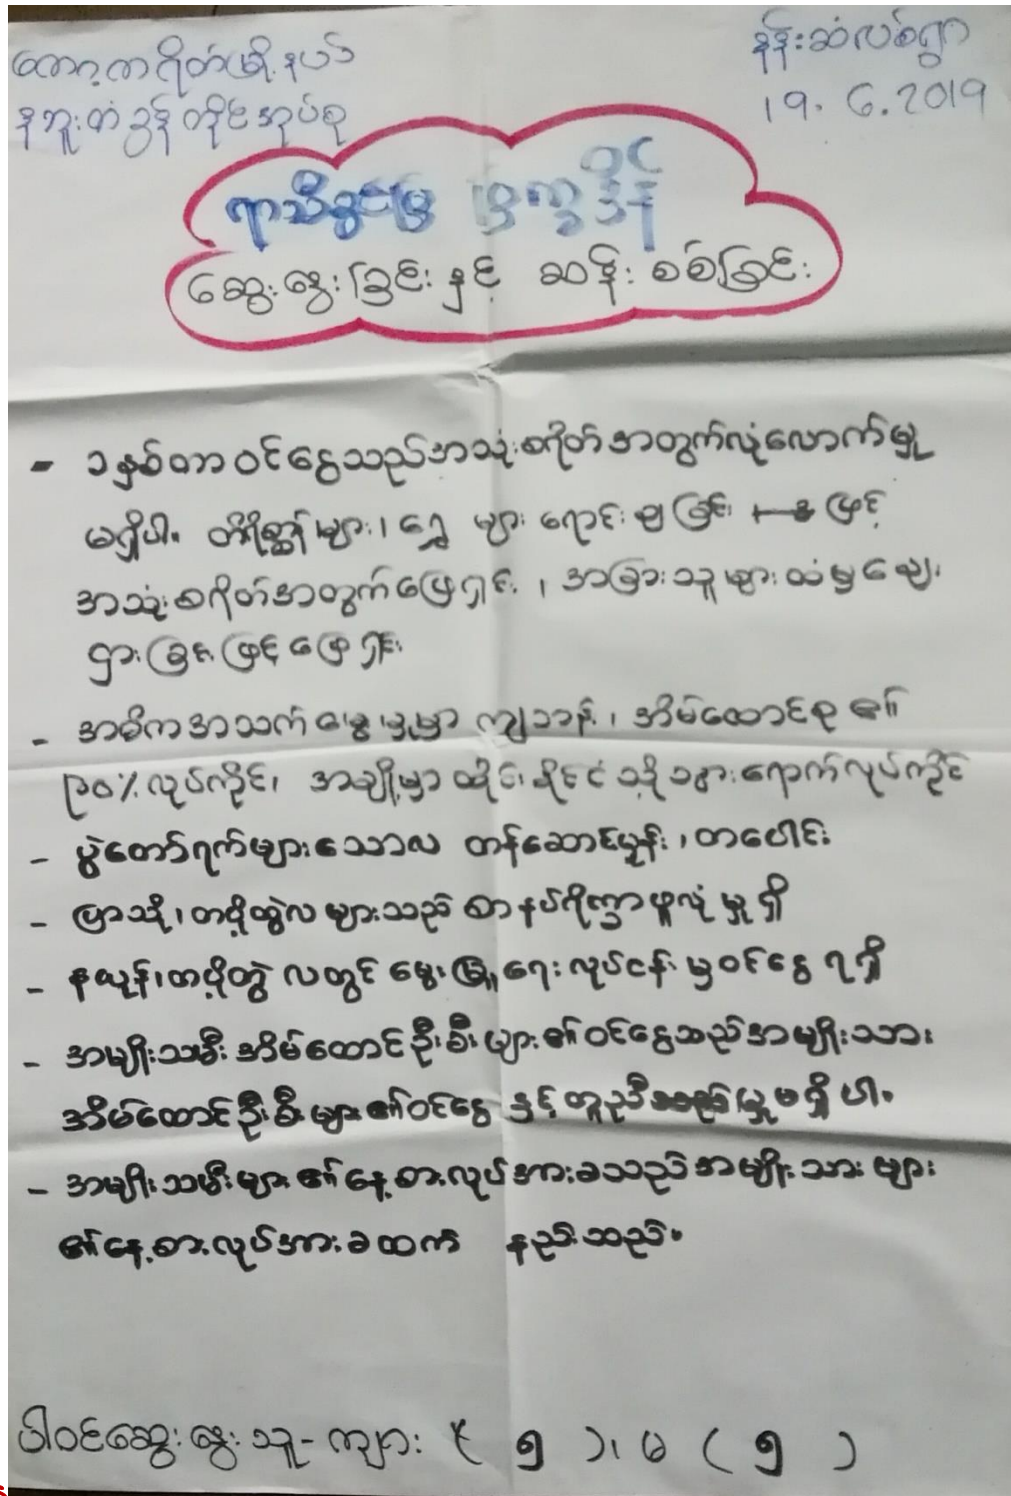 ကော့ကရိတ်မြို့နယ်
နဘူးတံခွန်တိုင်အုပ်စု
နှန်းဆံလစ်ရွာ
19.6.2019
ရာသီခွင်ပြ ပြက္ခဒိန်
ဆွေးနွေးခြင်းနှင့် ဆန်းစစ်ခြင်း
- ၁နှစ်တာဝင်ငွေသည်အသုံးစရိတ်အတွက်လုံလောက်မှု
မရှိပါ။ တိရိစ္ဆာန်များ၊ ရွှေများ ရောင်းချခြင်း ဖြင့်
အသုံးစရိတ်အတွက်ဖြေရှင်း၊ အခြားသူများထံမှချေး
ငှားခြင်းဖြင့်ဖြေရှင်း
- အဓိကအသက်မွေးမှုမှာ ကျဘန်း၊ အိမ်ထောင်စု၏
၉၀% လုပ်ကိုင်၊ အချို့မှာ ထိုင်းနိုင်ငံသို့သွားရောက်လုပ်ကိုင်
- ပွဲတော်ရက်များသောလ တန်ဆောင်မုန်း၊ တပေါင်း
- ပြာသို၊ တပို့ထွဲလများသည် စာနပ်ရိက္ခာဖူလုံမှုရှိ
- နယုန်၊ တပို့တွဲ လတွင် မွေးမြူရေးလုပ်ငန်းမှဝင်ငွေရရှိ
- အမျိုးသမီးအိမ်ထောင်ဦးစီးများ၏ဝင်ငွေသည်အမျိုးသား
အိမ်ထောင်ဦးစီးများ၏ဝင်ငွေ နှင့်တူညီမှုမရှိပါ။
- အမျိုးသမီးများ၏နေ့စားလုပ်အားခသည်အမျိုးသားများ
၏နေ့စားလုပ်အားခထက် နည်းသည်။
ပါဝင်ဆွေးနွေးသူ - ကျား ( ၅ )၊ မ ( ၅ )